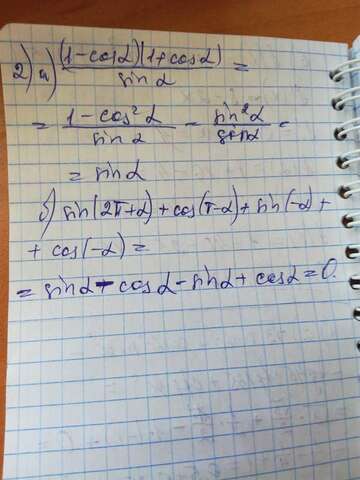 2) а) (1-cosα)(1+cosα)/sinα =
= 1-cos²α/sinα = sin²α/sinα =
= sinα
б) sin(2π+α)+cos(π-α)+sin(-α)+
+ cos(-α) =
= sinα - cosα - sinα + cosα = 0.